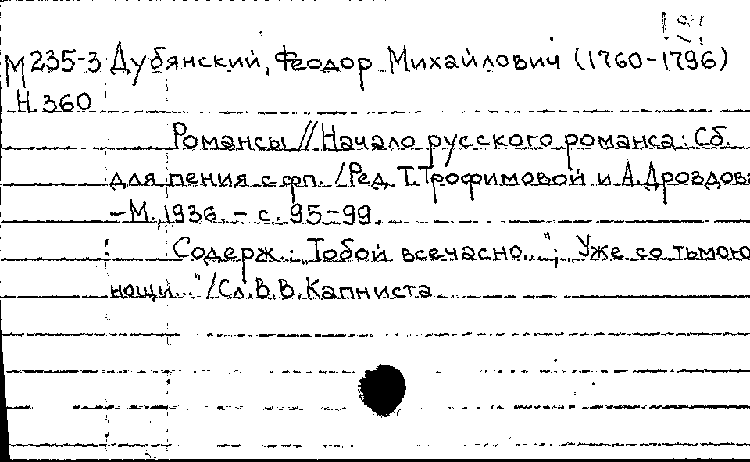 М235-3 Дубянский, Феодор Михайлович (1760-1796)
Н.360
Романсы // Начало русского романса: Сб.
для пения с фп. / Ред. Т. Трофимовой и А. Дроздова
-М., 1936. - с. 95-99.
Содерж.: „Тобой всечасно..."; „Уже со тьмою
нощи..." / Сл. В. В. Капниста